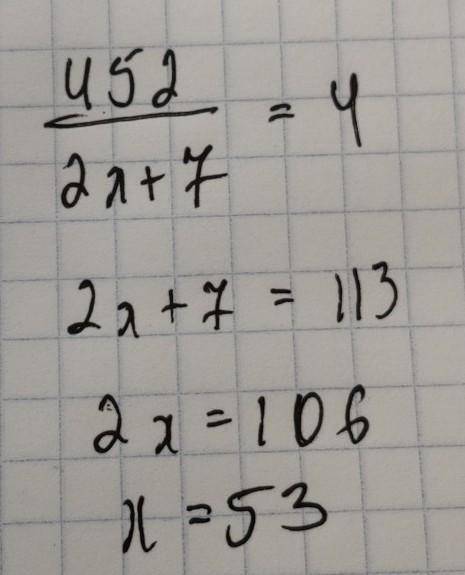 452
/(2x+7) = 4
2x+7 = 113
2x = 106
x = 53